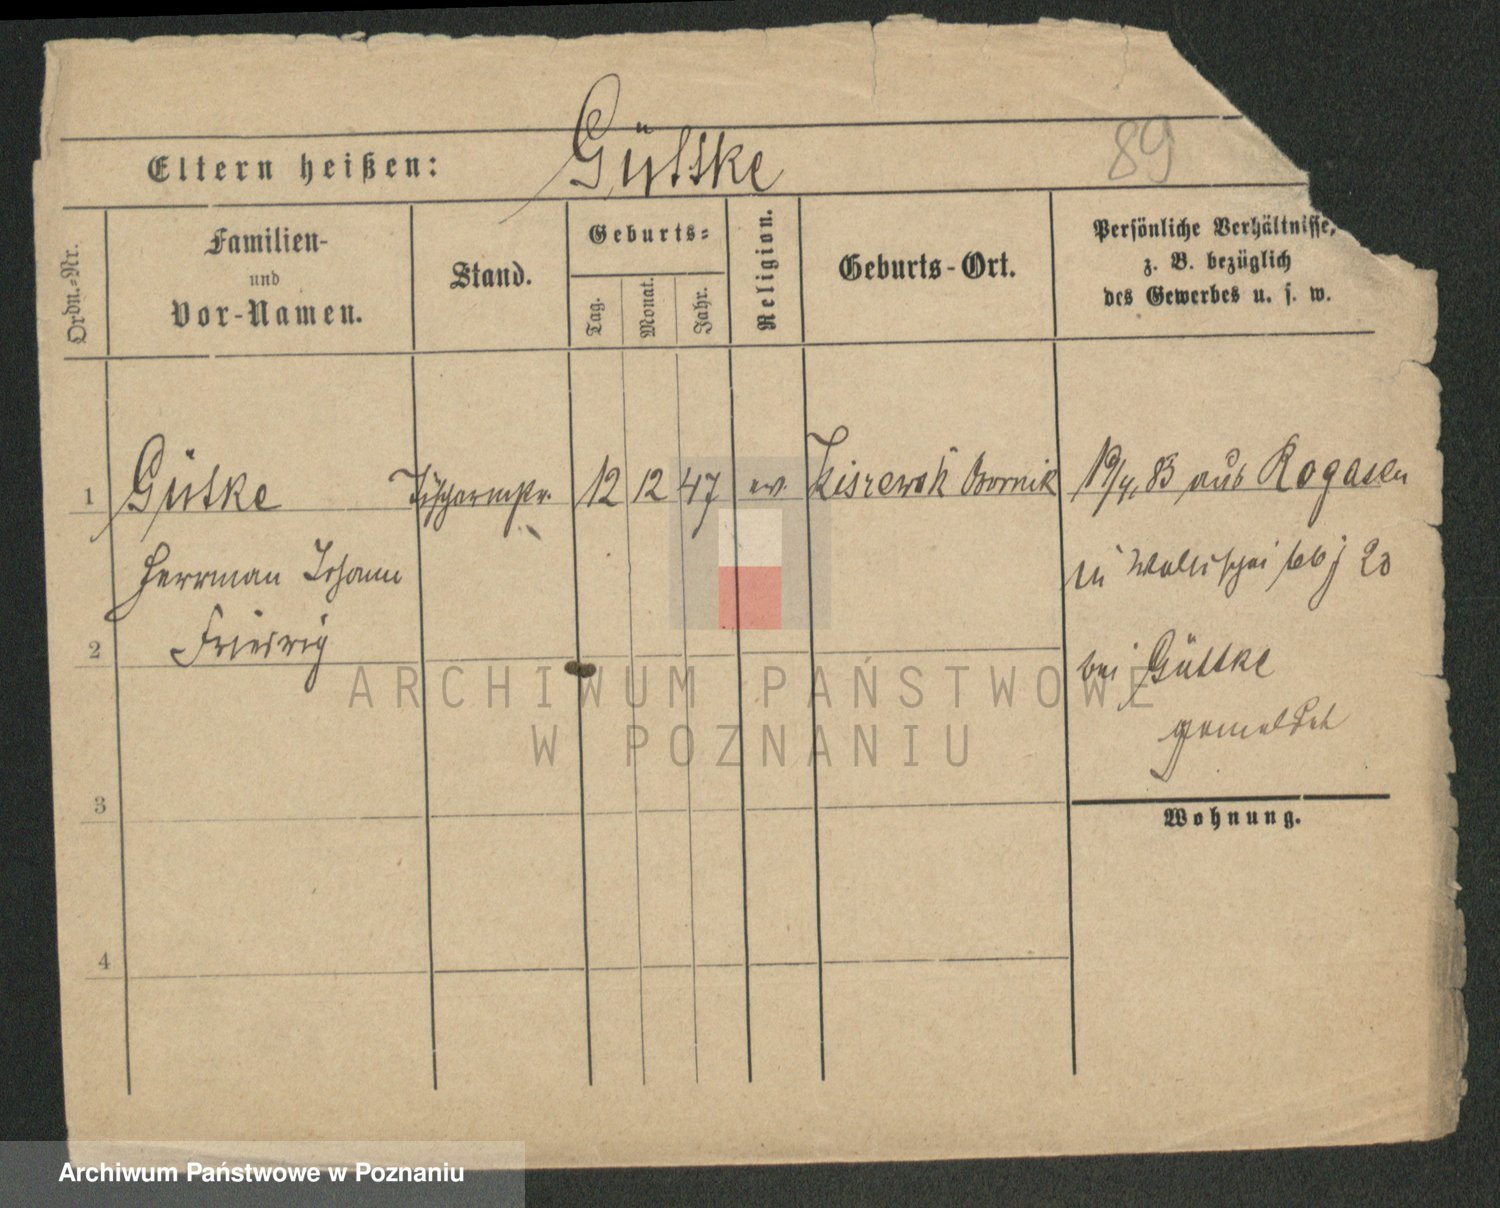 Eltern heißen: Güttske 89
Ordn.-Nr.
Familien-
und
Vor-Namen.
Stand.
Geburts-
Tag.
Monat.
Jahr.
Religion.
Geburts-Ort.
Persönliche Verhältnisse,
z. B. bezüglich
des Gewerbes u. s. w.
1 Gütske Tischlermstr. 12 12 47 ev. Obornik 83 aus Rogasen
Herrman Johann
zu 20
2 Friedrig
bei Güttke
gemeldet
3
Wohnung.
4
ARCHIWUM PAŃSTWOWE
W POZNANIU
Archiwum Państwowe w Poznaniu